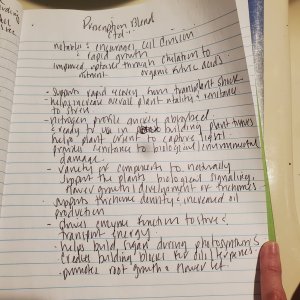 Blend
Ctd-
cell division
rapid growth
improved uptake through chelation to
nutrient organic fulvic acids
- Supports rapid recovery from transplant shock
- helps increase overall plant vitality & resistance
to stress
- nitrogen profile quickly absorbed
& ready to use in building plant types
- helps plant orient to capture light
- provides resistance to biological/environmental
damage
- variety of components to naturally
support the plants biological signaling,
flower growth/development of trichomes
- supports trichome density & increased oil
production
- enzyme function to store &
transport energy
- helps build sugars during photosynthesis
creates building blocks for oils/terpenes
- promotes root growth & flower set